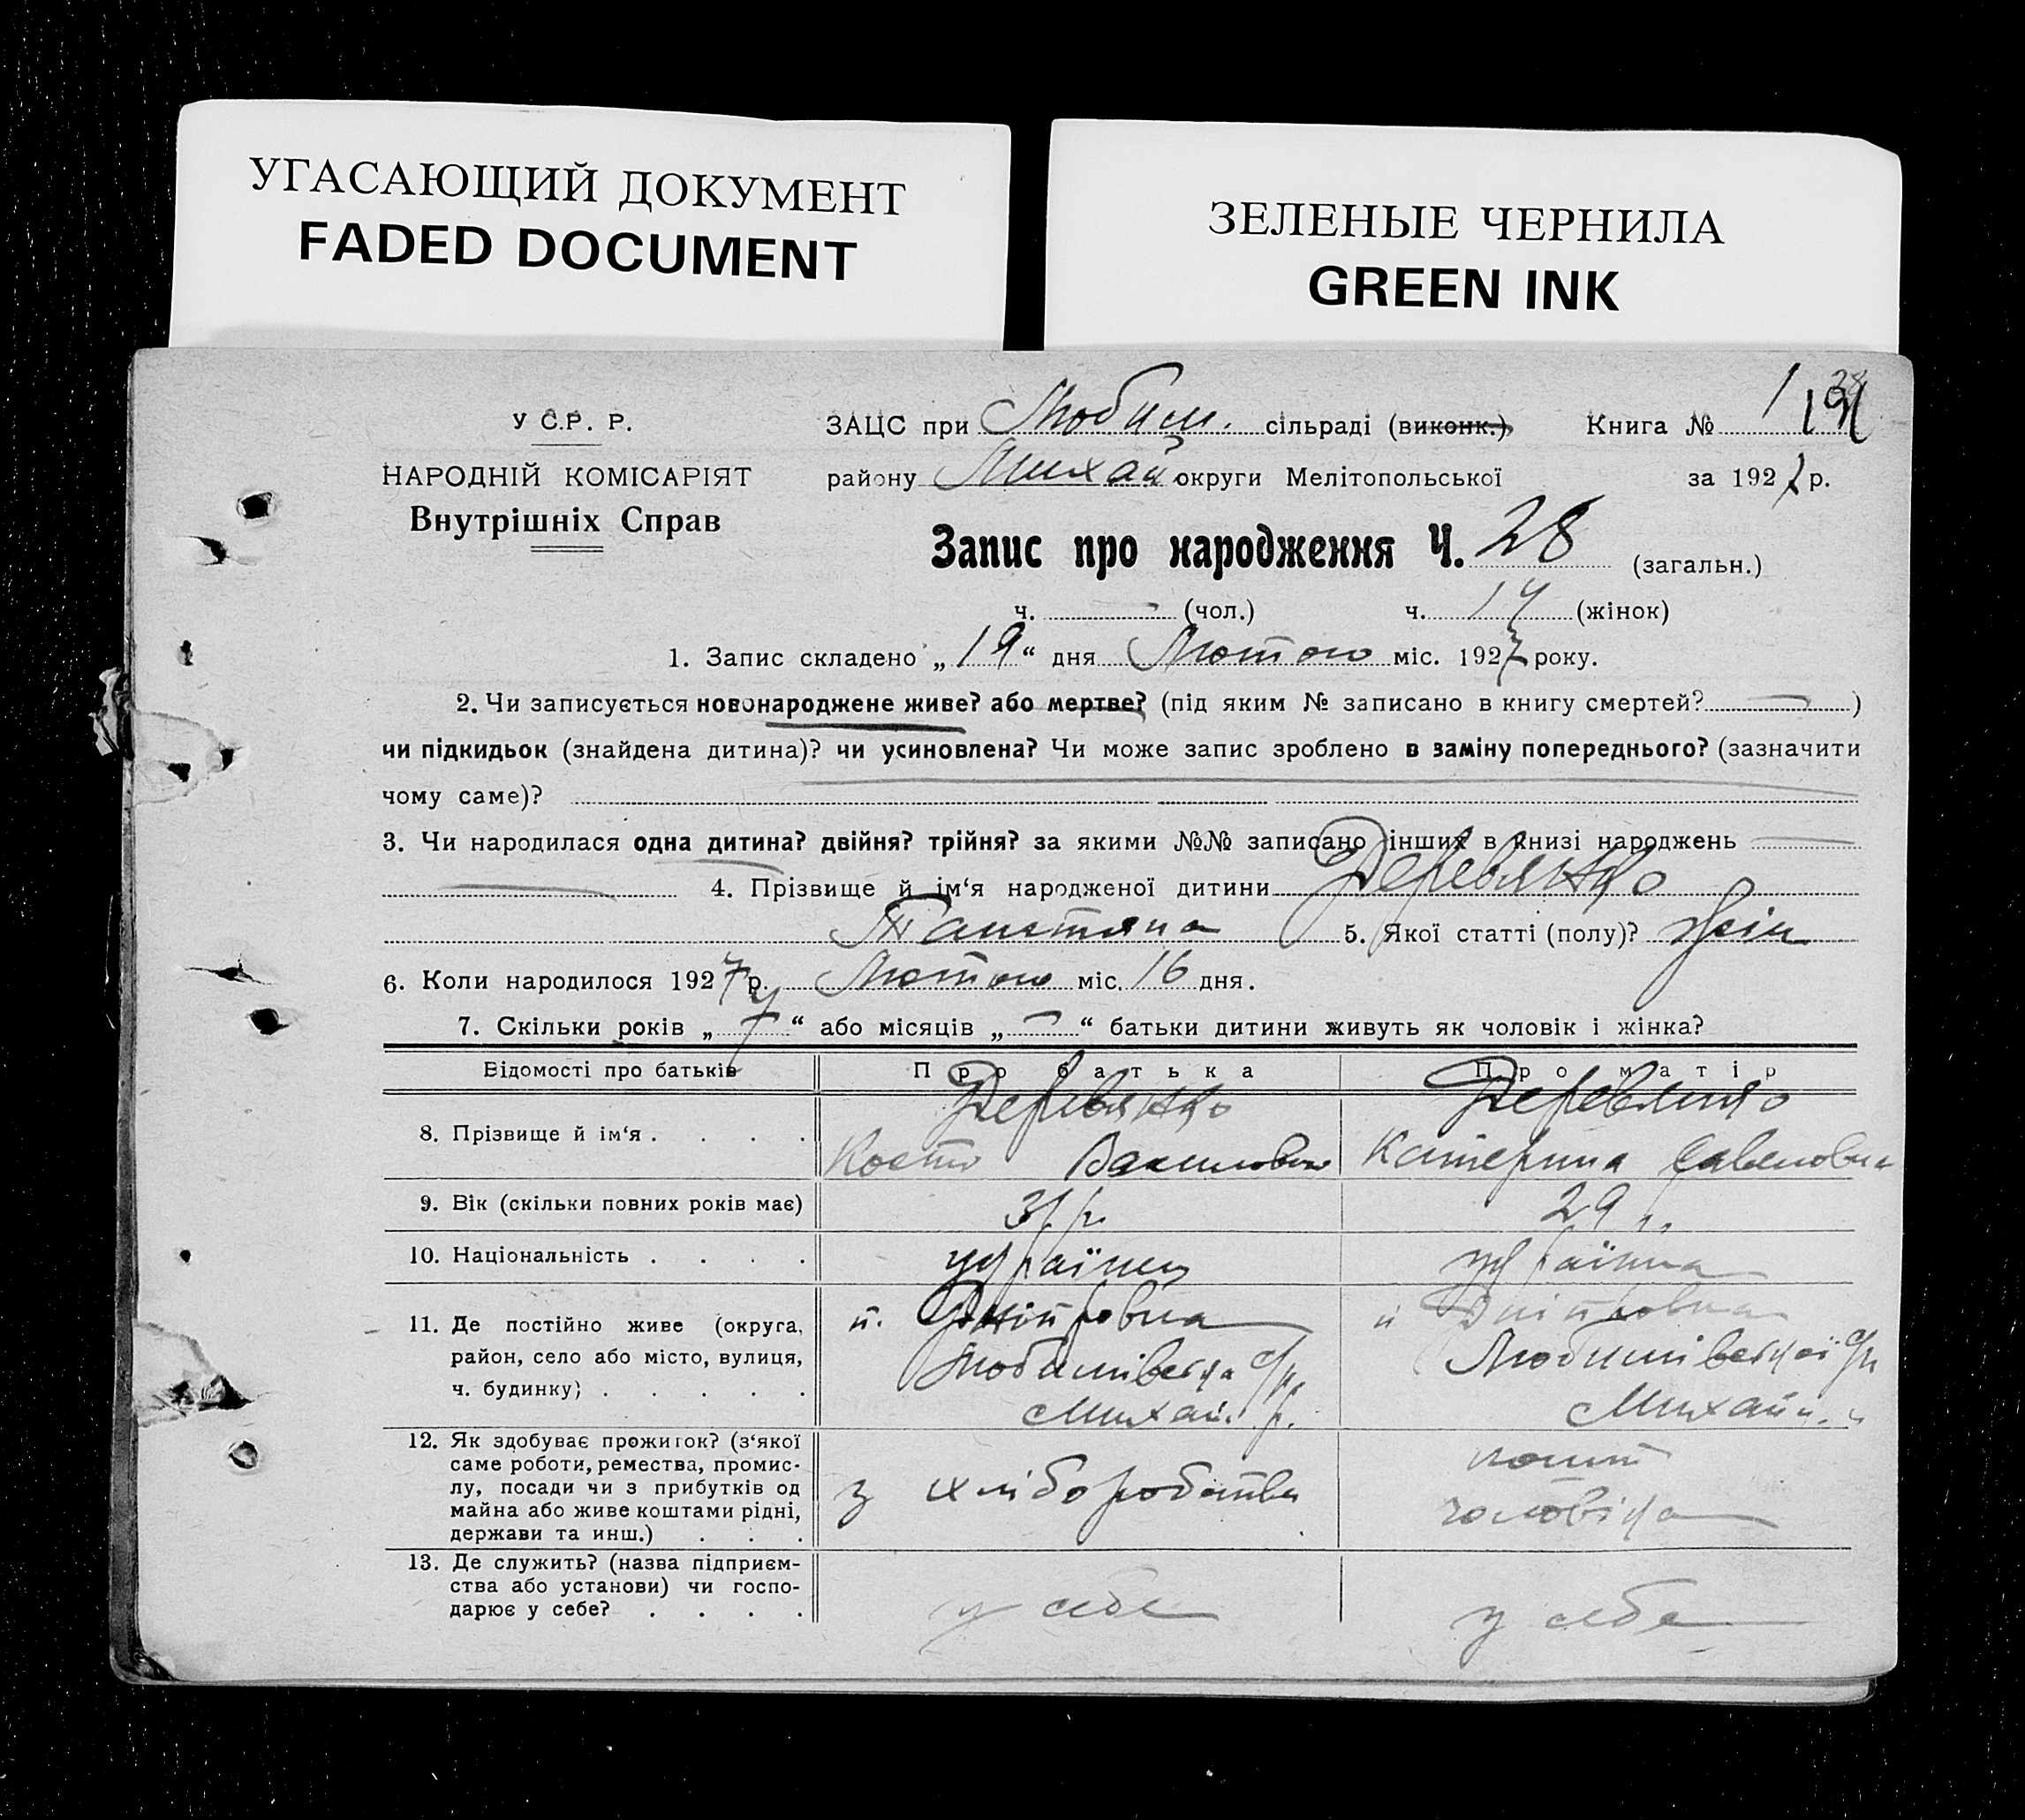 УГАСАЮЩИЙ ДОКУМЕНТ
FADED DOCUMENT
ЗЕЛЕНЫЕ ЧЕРНИЛА
GREEN INK
У С.Р. Р.
НАРОДНІЙ КОМІСАРІЯТ
Внутрішніх Справ
ЗАЦС при Любим. сільраді (виконк.) Книга № 1
району Михай округи Мелітопольської за 1927 р.
Запис про народження Ч. 28 (загальн.)
ч. — (чол.) ч. 14 (жінок)
1. Запис складено „19“ дня Лютого міс. 1927 року.
2. Чи записується новонароджене живе? або мертве? (під яким № записано в книгу смертей? — )
чи підкидьок (знайдена дитина)? чи усиновлена? Чи може запис зроблено в заміну попереднього? (зазначити
чому саме)?
3. Чи народилася одна дитина? двійня? трійня? за якими №№ записано інших в книзі народжень —
— 4. Прізвище й ім‘я народженої дитини Деревянко
5. Якої статті (полу)? жін
6. Коли народилося 1927 р. Лютого міс. 16 дня.
7. Скільки років „7“ або місяців „—“ батьки дитини живуть як чоловік і жінка?
Відомості про батьків Про батька Про матір
8. Прізвище й ім‘я . . . . Деревянко Деревянко
Катерина Савеловна
9. Вік (скільки повних років має) 31 р. 29 "
10. Національність . . . . українец українка
11. Де постійно живе (округа, район, село або місто, вулиця, ч. будинку) . . . . .
п. Дмітровка
Любимівська с/р.
Михай. р.
п Дмітровка
Любимівської с/р
Михайл.
12. Як здобуває прожиток? (з‘якої саме роботи, ремества, промислу, посади чи з прибутків од майна або живе коштами рідні, держави та инш.) . . .
з хліборобства
кошт
чоловіка
13. Де служить? (назва підприємства або установи) чи господарює у себе? . . . .
у себе
у себе